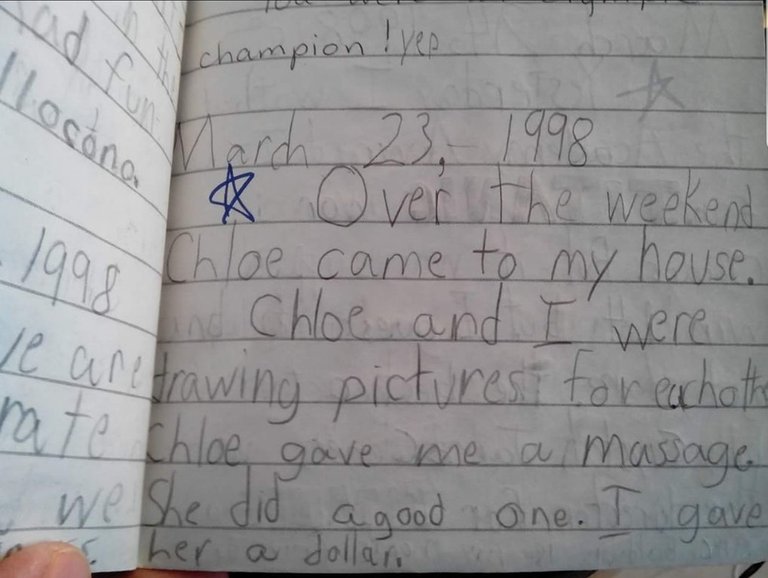 ad fun
1998
we are
rate
we
You were Olympic
champion ! yep
March 23, 1998
Over the weekend
Chloe came to my house.
Chloe and I were
drawing pictures for eachoth
Chloe gave me a massage.
She did a good one. I gave
her a dollar.